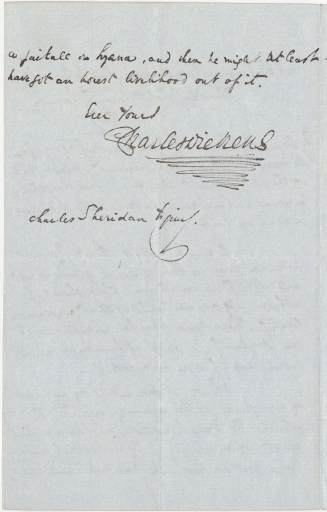 a jackall or hyæna, and then he might at least
have got an honest livelihood out of it.
Ever Yours
Charles Dickens
Charles Sheridan